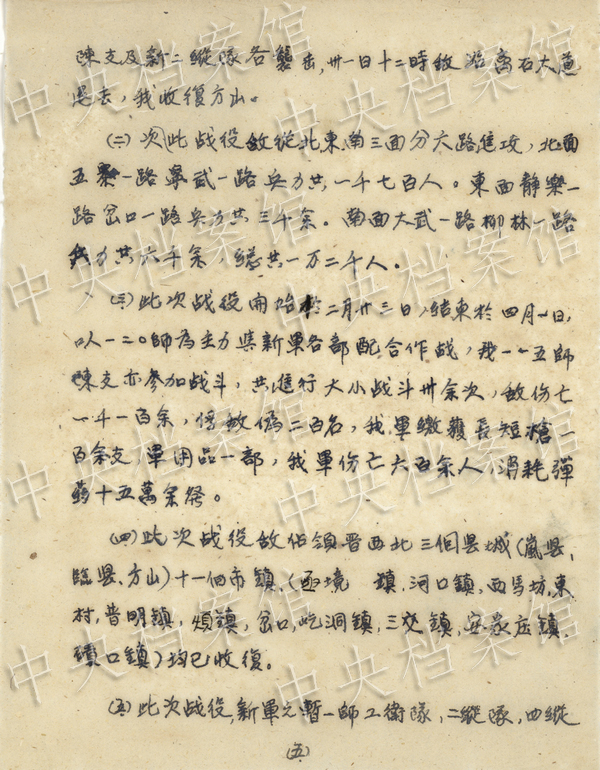 陳支及新二縱隊各襲击,卅一日十二時敌沿离石大道
退去,我收復方山。
(二)次此战役敌從北東南三面分六路進攻,北面
五寨一路寧武一路兵力共一千七百人。東面静樂一
路岔口一路兵力共三千余。南面大武一路柳林一路
兵力共六千余,總共一万二千人。
(三)此次战役開始於二月廿三日,結束於四月一日,
以一二〇師為主力與新軍各部配合作战,我一一五師
陳支亦參加战斗,共進行大小战斗卅余次,敌伤亡
一千一百余,俘敌偽二百名,我軍缴獲長短槍一
百余支,軍用品一部,我軍伤亡六百余人,消耗彈
葯十五萬余發。
(四)此次战役敌佔領晋西北三個县城(嵐县,
臨县,方山)十一個市鎮,(函境 鎮,河口鎮,西馬坊,東
村,普明鎮,鎮,岔口,圪洞鎮,三交鎮,安家庄鎮,
磧口鎮)均已收復。
(五)此次战役,新軍之暫一師工衛隊,二縱隊,四縱
(五)
中央档案馆